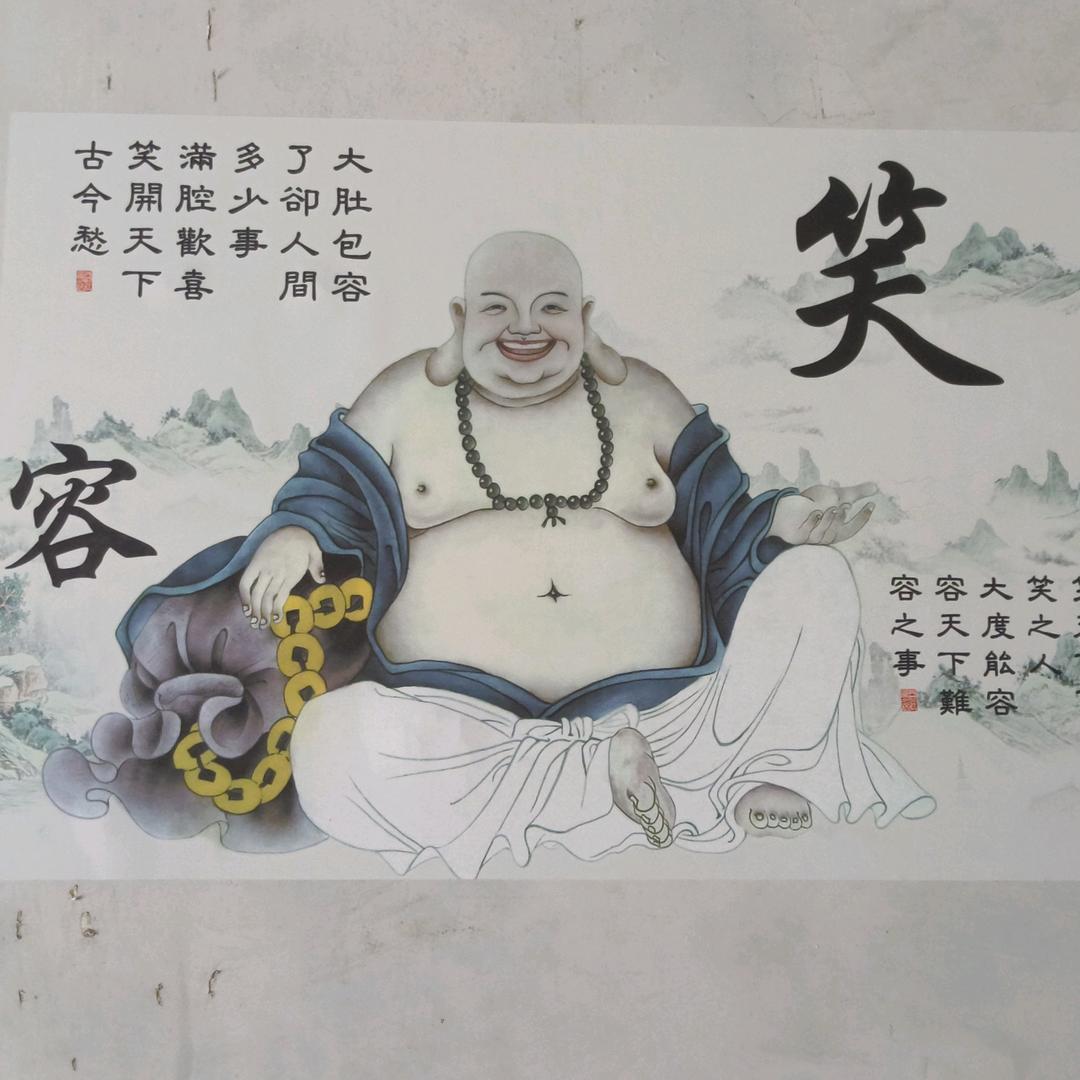 笑
容
大肚包容
了卻人間
多少事
滿腔歡喜
笑開天下
古今愁
笑之人
大度能容
容天下難
容之事